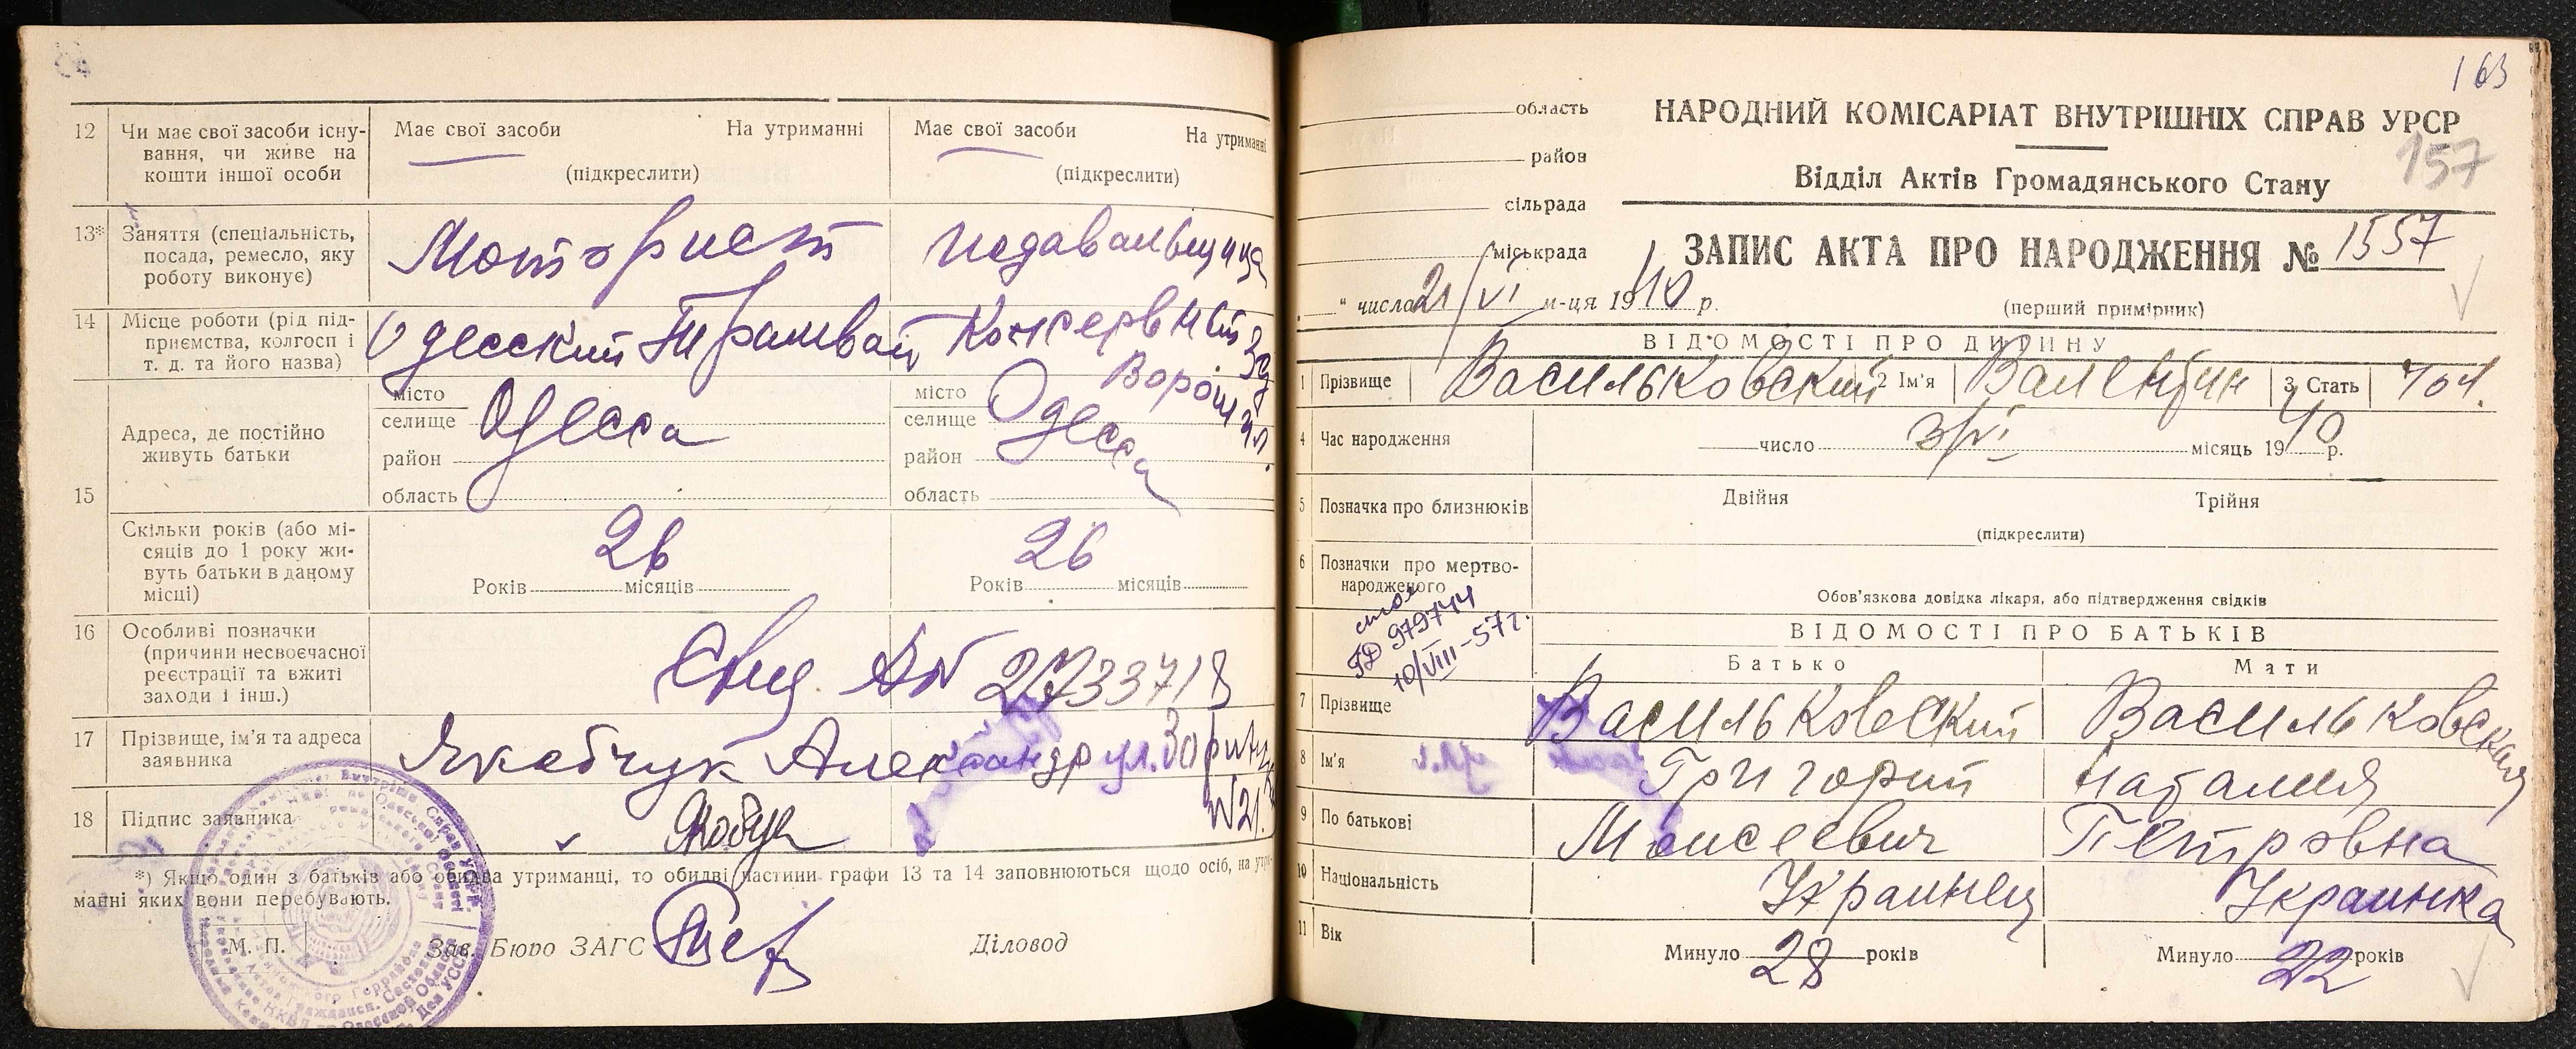 12 Чи має свої засоби існу-
вання, чи живе на
кошти іншої особи
Має свої засоби На утриманні
(підкреслити)
Має свої засоби На утриманні
(підкреслити)
13* Заняття (спеціальність,
посада, ремесло, яку
роботу виконує)
Моторист
подавальщица
14 Місце роботи (рід під-
приємства, колгосп і
т. д. та його назва)
Одесский Трамвай
Консервный
Ворошил.
15 Адреса, де постійно
живуть батьки
місто
селище Одесса
район
область
місто
селище Одесса
район
область
Скільки років (або мі-
сяців до 1 року жи-
вуть батьки в даному
місці)
26
Років місяців
26
Років місяців
16 Особливі позначки
(причини несвоєчасної
реєстрації та вжиті
заходи і інш.)
17 Прізвище, ім'я та адреса
заявника
Якобчук Александр ул.
№ 21.
18 Підпис заявника
*) Якщо один з батьків або обидва утриманці, то обидві частини графи 13 та 14 заповнюються щодо осіб, на утри-
манні яких вони перебувають.
М. П. Зав. Бюро ЗАГС Діловод
163
область
район
сільрада
міськрада
НАРОДНИЙ КОМІСАРІАТ ВНУТРІШНІХ СПРАВ УРСР
157
Відділ Актів Громадянського Стану
ЗАПИС АКТА ПРО НАРОДЖЕННЯ № 1557
" числа 21/VI м-ця 1940 р.
(перший примірник)
ВІДОМОСТІ ПРО ДИТИНУ
1 Прізвище Васильковский 2 Ім'я Валентин 3 Стать чол.
4 Час народження число 3/VI місяць 1940 р.
5 Позначка про близнюків Двійня Трійня
(підкреслити)
6 Позначки про мертво-
народженого
Обов'язкова довідка лікаря, або підтвердження свідків
979744
10/VIII-57г.
ВІДОМОСТІ ПРО БАТЬКІВ
Батько Мати
7 Прізвище Васильковский Васильковская
8 Ім'я Григорий Наталия
9 По батькові Моисеевич Петровна
10 Національність Украинец Украинка
11 Вік Минуло 28 років Минуло 22 років